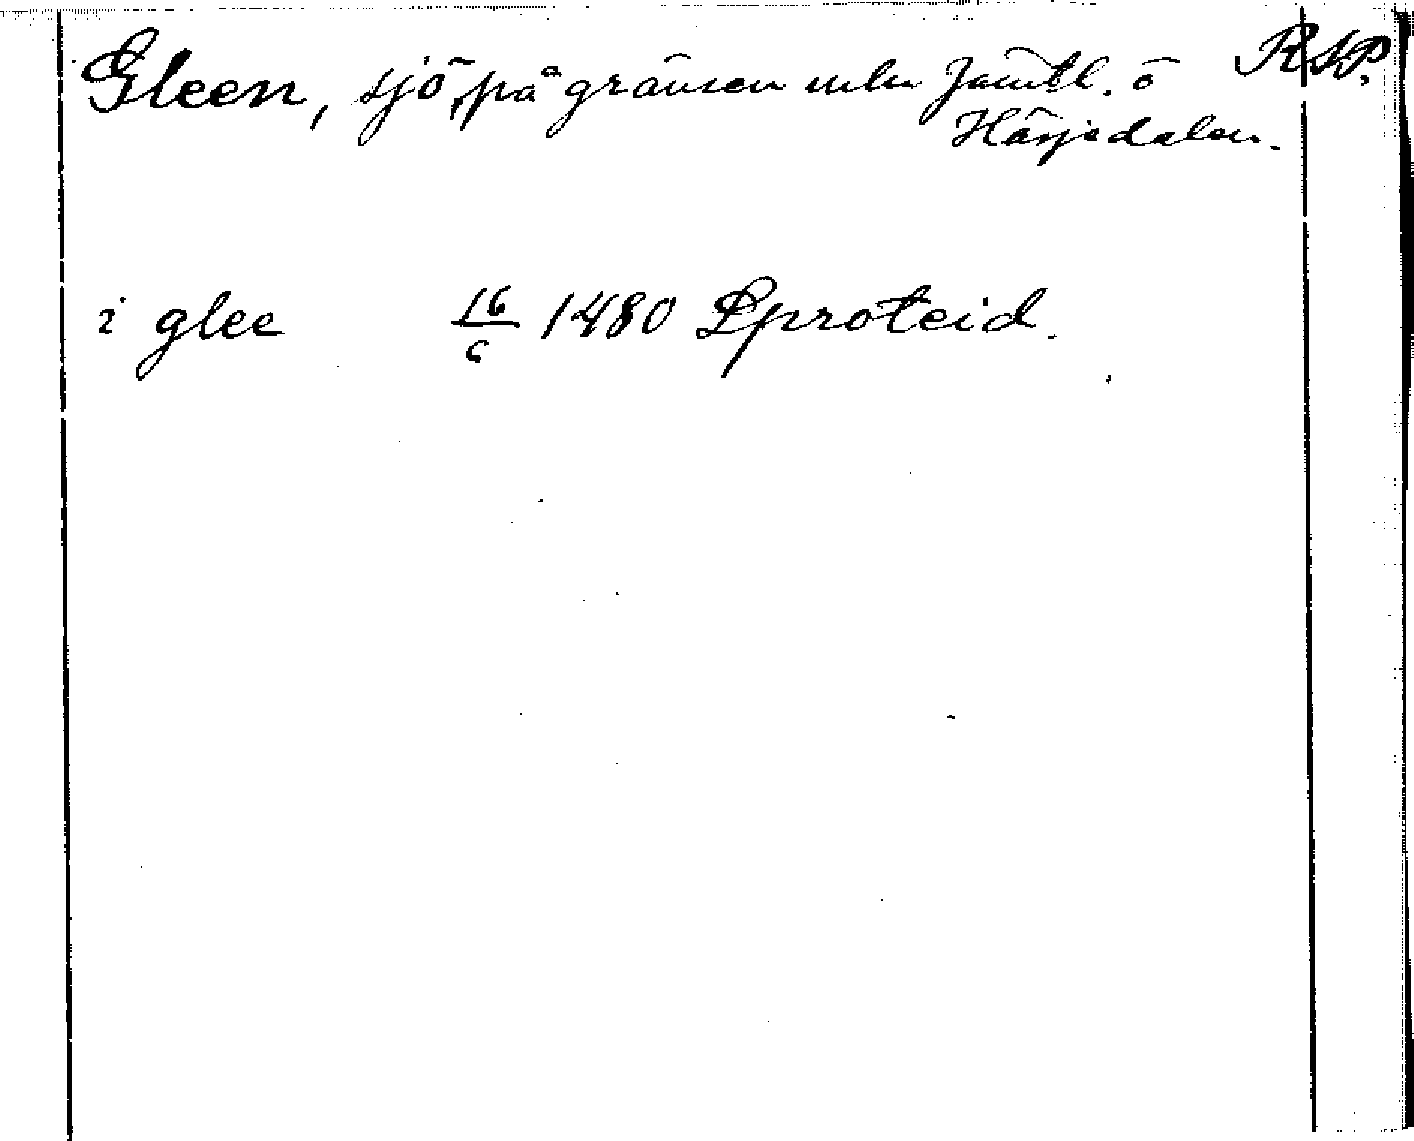 Gleen, sjö, på gränsen mln Jämtl. o RSP.
Härjedalen.
i glee 16/6 1480 Sproteid.